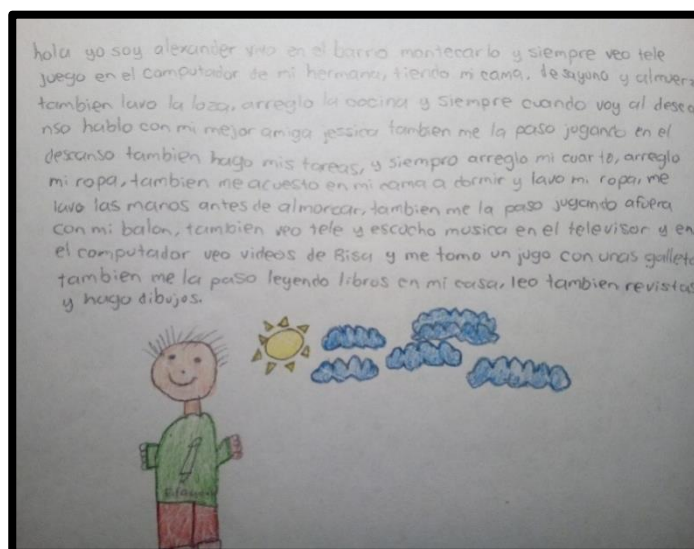 hola yo soy alexander vivo en el barrio montecarlo y siempre veo tele
juego en el computador de mi hermana, tiendo mi cama, desayuno y almuerz
tambien lavo la loza, arreglo la cocina y siempre cuando voy al desca
nso hablo con mi mejor amiga jessica tambien me la paso jogando en el
descanso tambien hago mis tareas, y siempro arreglo mi cuarto, arreglo
mi ropa, tambien me acuesto en mi cama a dormir y lavo mi ropa, me
lavo las manos antes de almorzar, tambien me la paso jugando afuera
con mi balon, tambien veo tele y escucho musica en el televisor y en
el computador veo videos de Risa y me tomo un jugo con unas galleta
tambien me la paso leyendo libros en mi casa, leo tambien revistas
y hago dibujos.